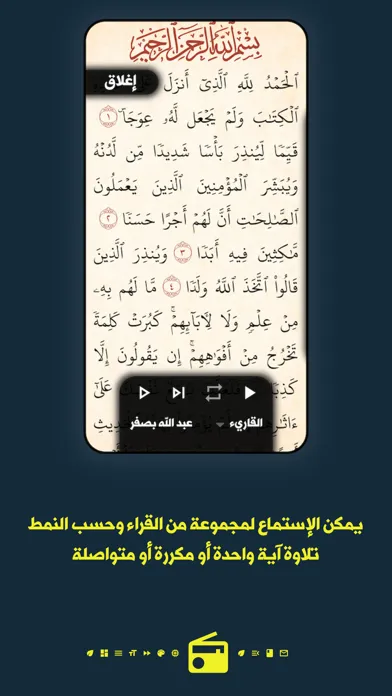 بِسْمِ ٱللَّهِ ٱلرَّحْمَٰنِ ٱلرَّحِيمِ
ٱلْحَمْدُ لِلَّهِ ٱلَّذِىٓ أَنزَلَ
إغلاق
ٱلْكِتَٰبَ وَلَمْ يَجْعَل لَّهُۥ عِوَجَاۜ ١
قَيِّمًا لِّيُنذِرَ بَأْسًا شَدِيدًا مِّن لَّدُنْهُ
وَيُبَشِّرَ ٱلْمُؤْمِنِينَ ٱلَّذِينَ يَعْمَلُونَ
ٱلصَّٰلِحَٰتِ أَنَّ لَهُمْ أَجْرًا حَسَنًا
٢ مَّٰكِثِينَ فِيهِ أَبَدًا ٣ وَيُنذِرَ ٱلَّذِينَ
قَالُوا۟ ٱتَّخَذَ ٱللَّهُ وَلَدًا ٤ مَّا لَهُم بِهِۦ
مِنْ عِلْمٍ وَلَا لِـَٔابَآئِهِمْ ۚ كَبُرَتْ كَلِمَةً
تَخْرُجُ مِنْ أَفْوَٰهِهِمْ ۚ إِن يَقُولُونَ إِلَّا
كَذِبًا
القاريء عبد الله بصفر
يمكن الإستماع لمجموعة من القراء وحسب النمط
تلاوة آية واحدة أو مكررة أو متواصلة